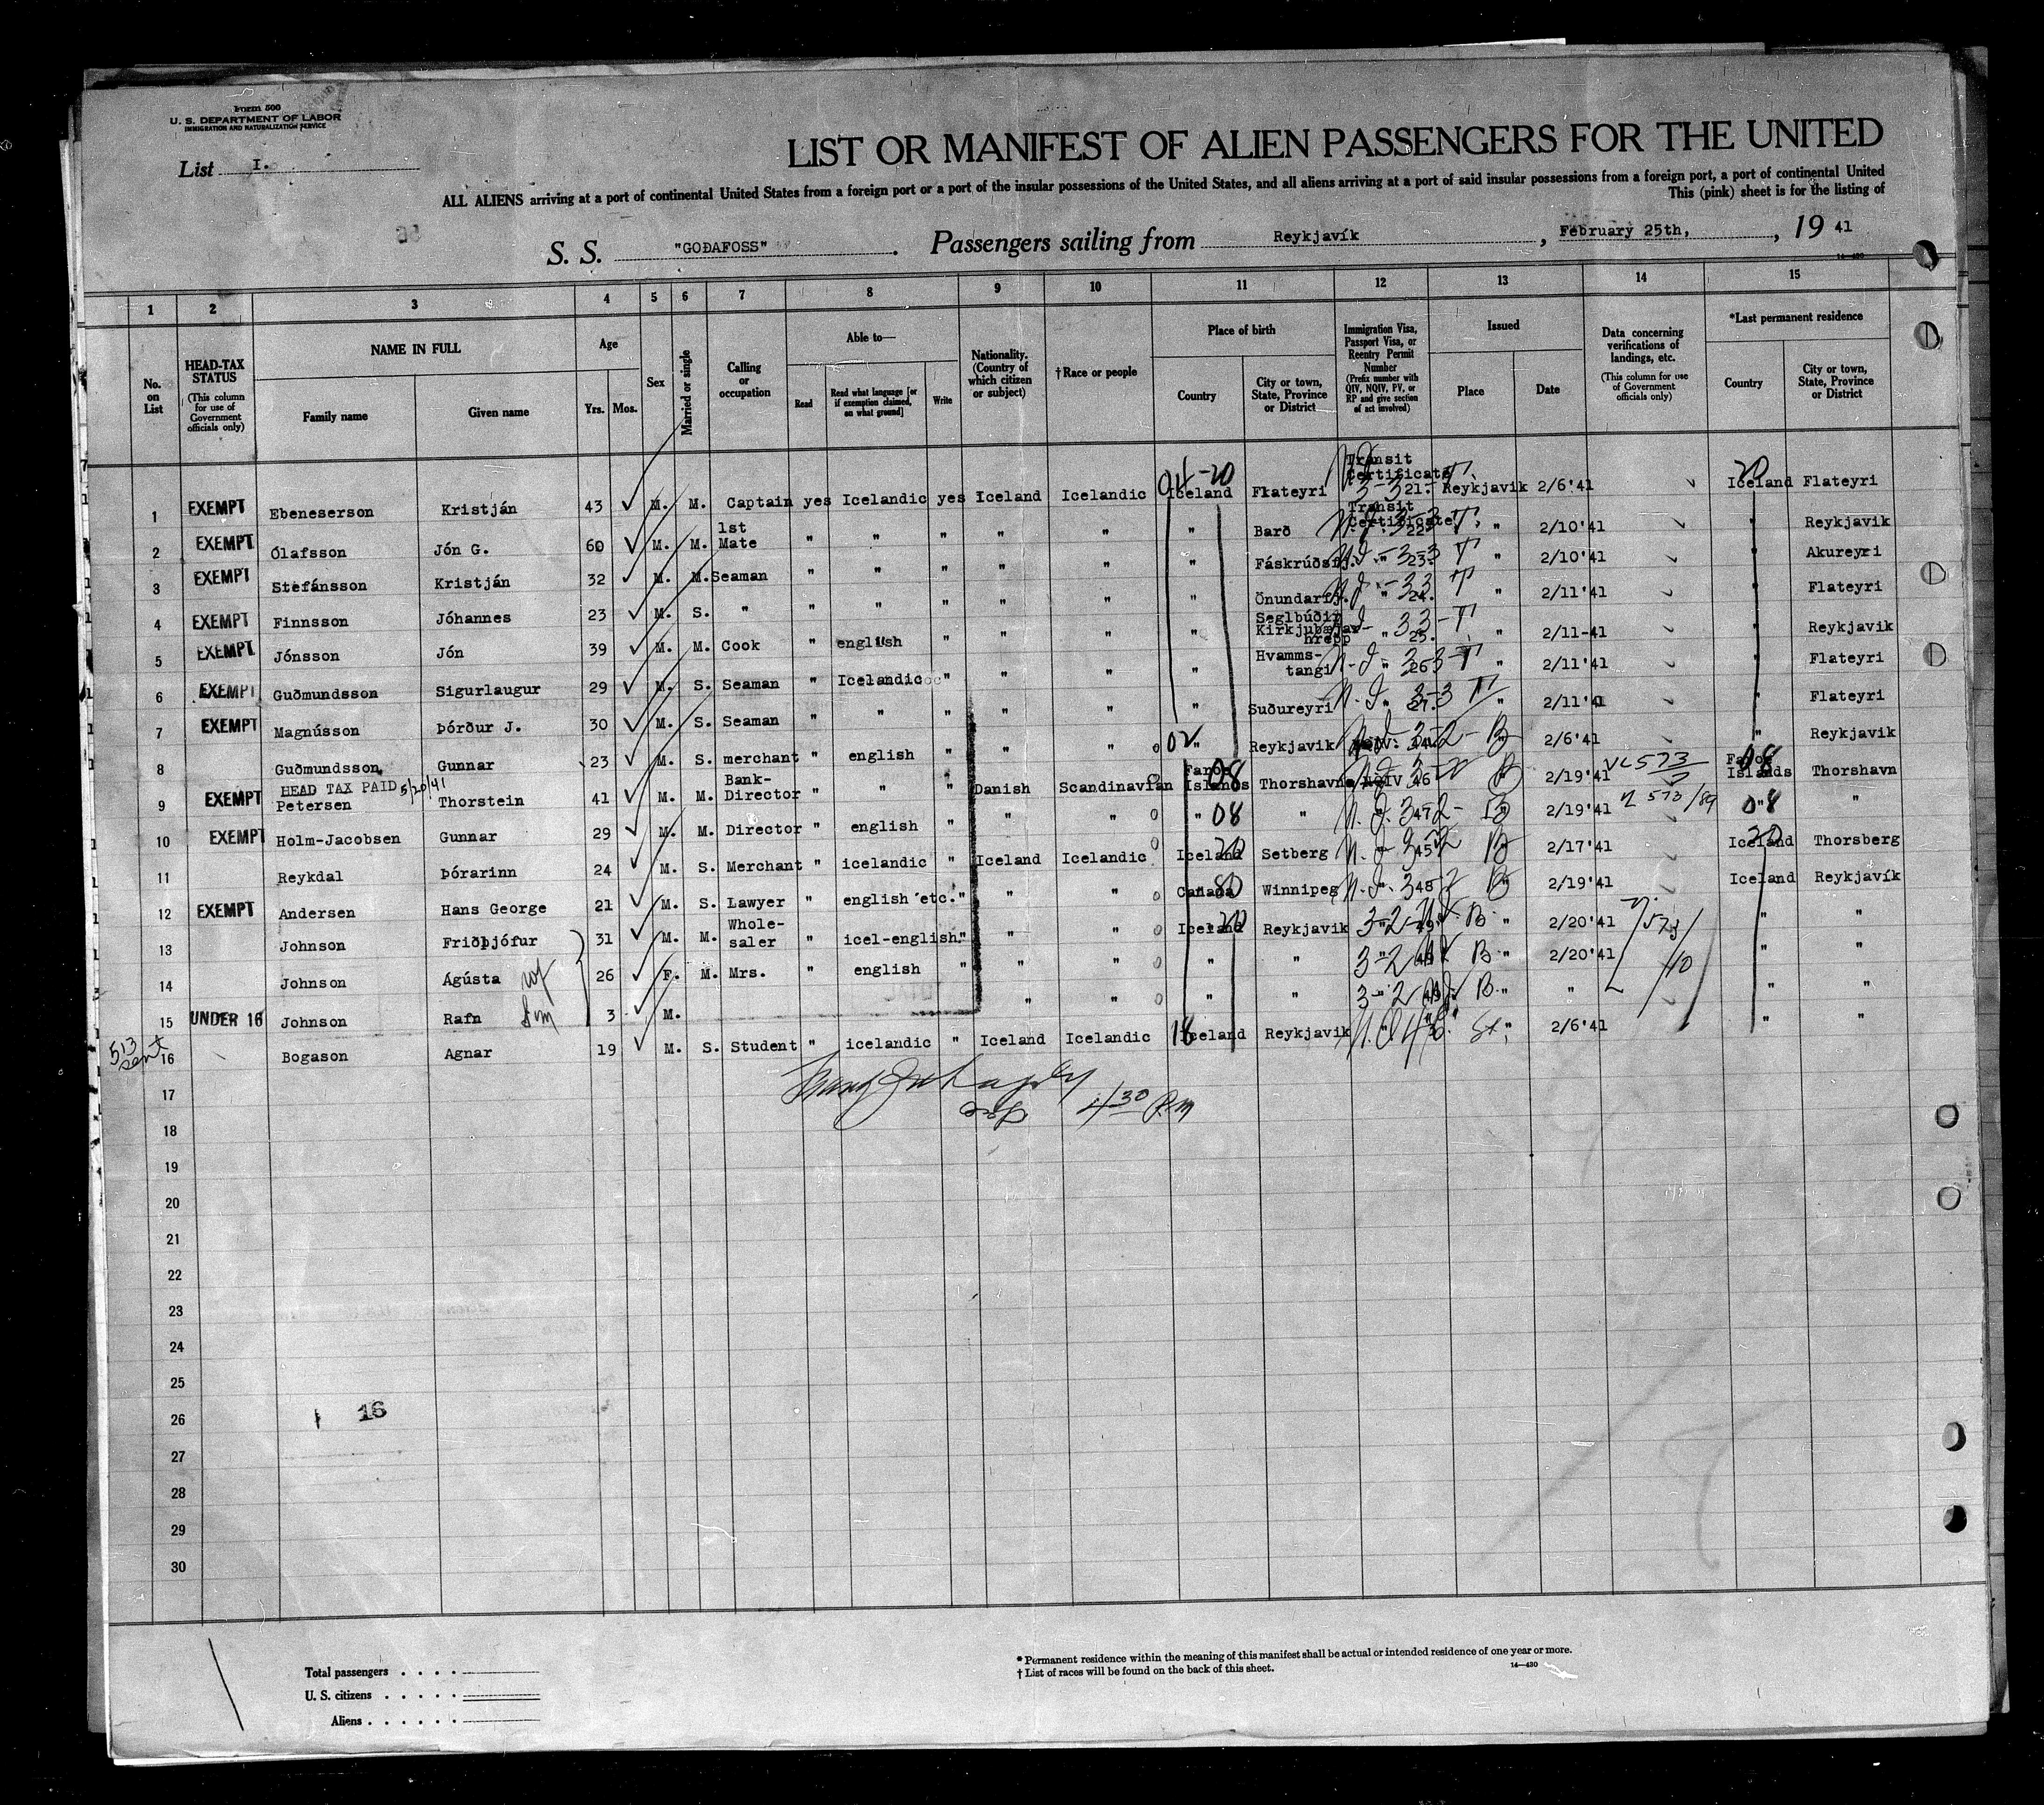 Form 500
U. S. DEPARTMENT OF LABOR
IMMIGRATION AND NATURALIZATION SERVICE
List I.
LIST OR MANIFEST OF ALIEN PASSENGERS FOR THE UNITED
ALL ALIENS arriving at a port of continental United States from a foreign port or a port of the insular possessions of the United States, and all aliens arriving at a port of said insular possessions from a foreign port, a port of continental United
This (pink) sheet is for the listing of
S. S. "GOÐAFOSS". Passengers sailing from Reykjavík, February 25th, , 19 41
1 2 3 4 5 6 7 8 9 10 11 12 13 14 15
No. on List
HEAD-TAX STATUS (This column for use of Government officials only)
NAME IN FULL
Family name
Given name
Age
Yrs. Mos.
Sex
Married or single
Calling or occupation
Able to—
Read
Read what language [or if exemption claimed, on what ground]
Write
Nationality. (Country of which citizen or subject)
†Race or people
Place of birth
Country
City or town, State, Province or District
Immigration Visa, Passport Visa, or Reentry Permit Number (Prefix number with QIV, NQIV, PV, or RP and give section of act involved)
Issued
Place
Date
Data concerning verifications of landings, etc. (This column for use of Government officials only)
*Last permanent residence
Country
City or town, State, Province or District
1 EXEMPT Ebeneserson Kristján 43 M. M. Captain yes Icelandic yes Iceland Icelandic 04-20 Iceland Flateyri Transit Certificate 21. Reykjavik 2/6'41 20 Iceland Flateyri
2 EXEMPT Ólafsson Jón G. 60 M. M. 1st Mate " " " " " " Barð Transit Certificate 22 " 2/10'41 " Reykjavik
3 EXEMPT Stefánsson Kristján 32 M. M. Seaman " " " " " " Fáskrúðsfj. 23. " 2/10'41 " Akureyri
4 EXEMPT Finnsson Jóhannes 23 M. S. " " " " " " " Önundarfj. " 24. " 2/11'41 " Flateyri
5 EXEMPT Jónsson Jón 39 M. M. Cook " english " " " " Seglbúðir Kirkjubæjar hrepp " 25. " 2/11-41 " Reykjavik
6 EXEMPT Guðmundsson Sigurlaugur 29 M. S. Seaman " Icelandic " " " " Hvamms-tangi " 26 " 2/11'41 " Flateyri
7 EXEMPT Magnússon Þórður J. 30 M. S. Seaman " " " " " " Suðureyri " 27. " 2/11'41 " Flateyri
8 Guðmundsson Gunnar 23 M. S. merchant " english " " " 02 " Reykjavik 2/6'41 " Reykjavik
HEAD TAX PAID 5/20/41
9 EXEMPT Petersen Thorstein 41 M. M. Bank-Director " " " Danish Scandinavian Faroe Islands 08 Thorshavn NQIV 46 2/19'41 Faroe Islands 08 Thorshavn
10 EXEMPT Holm-Jacobsen Gunnar 29 M. M. Director " english " " " " 08 " 47 2/19'41 08 " "
11 Reykdal Þórarinn 24 M. S. Merchant " icelandic " Iceland Icelandic Iceland 20 Setberg 45 2/17'41 Iceland 20 Thorsberg
12 EXEMPT Andersen Hans George 21 M. S. Lawyer " english etc. " " " Canada 80 Winnipeg 48 2/19'41 Iceland Reykjavík
13 Johnson Friðþjófur 31 M. M. Whole-saler " icel-english " " " Iceland 20 Reykjavik 49 " 2/20'41 " "
14 Johnson Ágústa wf 26 F. M. Mrs. " english " " " " " " 2/20'41 " "
15 UNDER 16 Johnson Rafn 3 M. " " " " " " " "
16 Bogason Agnar 19 M. S. Student " icelandic " Iceland Icelandic 18 Iceland Reykjavik " 2/6'41 " "
513 sent
4 30 P.m
17
18
19
20
21
22
23
24
25
26
27
28
29
30
16
Total passengers
U. S. citizens
Aliens
* Permanent residence within the meaning of this manifest shall be actual or intended residence of one year or more.
† List of races will be found on the back of this sheet.
14—430